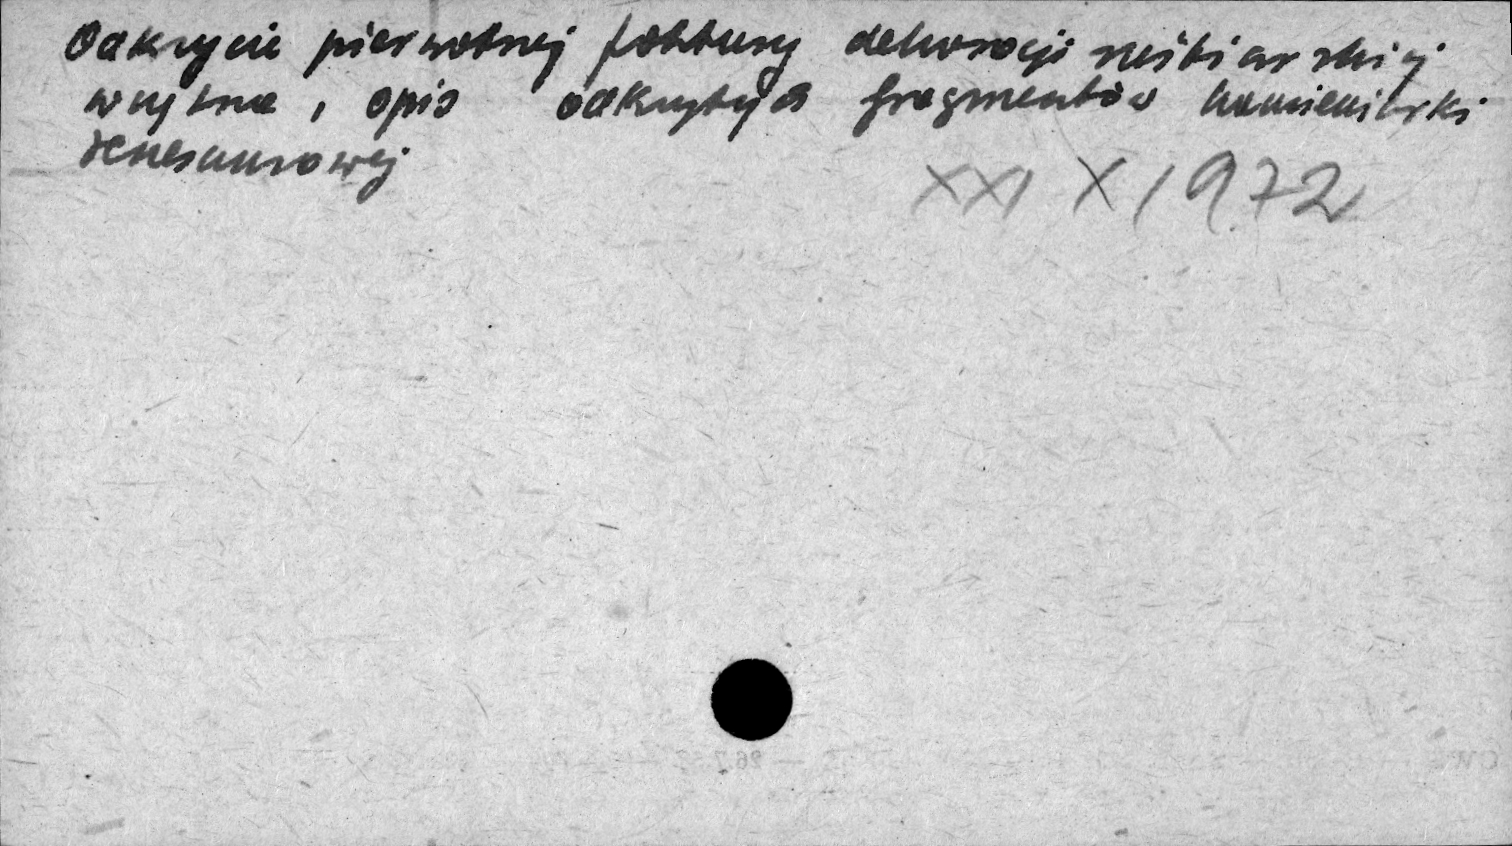 Odkrycie pierwotnej faktury dekoracji rzeźbiarskiej
wnętrza, opis odkrytych fragmentów kamieniarki
renesansowej
XXI X 1972